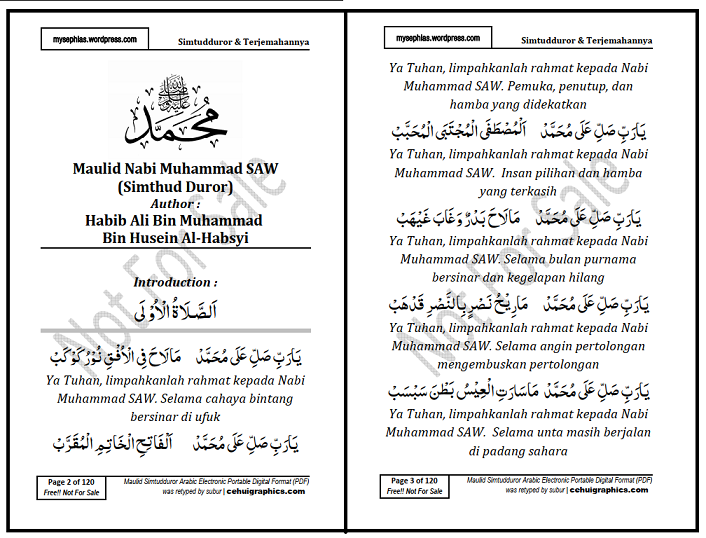 mysephias.wordpress.com
Simtudduror & Terjemahannya
محمد
Maulid Nabi Muhammad SAW
(Simthud Duror)
Author :
Habib Ali Bin Muhammad
Bin Husein Al-Habsyi
Introduction :
اَلصَّلَاةُ الْأُوْلَى
يَارَبِّ صَلِّ عَلَى مُحَمَّدْ مَالَاحَ فِى الْأُفْقِ نُوْرُ كَوْكَبْ
Ya Tuhan, limpahkanlah rahmat kepada Nabi
Muhammad SAW. Selama cahaya bintang
bersinar di ufuk
يَارَبِّ صَلِّ عَلَى مُحَمَّدْ اَلْفَاتِحِ الْخَاتِمِ الْمُقَرَّبْ
Not For Sale
Page 2 of 120
Free!! Not For Sale
Maulid Simtudduror Arabic Electronic Portable Digital Format (PDF)
was retyped by subur | cehuigraphics.com
mysephias.wordpress.com
Simtudduror & Terjemahannya
Ya Tuhan, limpahkanlah rahmat kepada Nabi
Muhammad SAW. Pemuka, penutup, dan
hamba yang didekatkan
يَارَبِّ صَلِّ عَلَى مُحَمَّدْ اَلْمُصْطَفَى الْمُجْتَبَى الْمُحَبَّبْ
Ya Tuhan, limpahkanlah rahmat kepada Nabi
Muhammad SAW. Insan pilihan dan hamba
yang terkasih
يَارَبِّ صَلِّ عَلَى مُحَمَّدْ مَالَاحَ بَدْرٌ وَغَابَ غَيْهَبْ
Ya Tuhan, limpahkanlah rahmat kepada Nabi
Muhammad SAW. Selama bulan purnama
bersinar dan kegelapan hilang
يَارَبِّ صَلِّ عَلَى مُحَمَّدْ مَارِيْحُ نَصْرٍ بِالنَّصْرِ قَدْهَبْ
Ya Tuhan, limpahkanlah rahmat kepada Nabi
Muhammad SAW. Selama angin pertolongan
mengembuskan pertolongan
يَارَبِّ صَلِّ عَلَى مُحَمَّدْ مَاسَارَتِ الْعِيْسُ بَطْنَ سَبْسَبْ
Ya Tuhan, limpahkanlah rahmat kepada Nabi
Muhammad SAW. Selama unta masih berjalan
di padang sahara
Not For Sale
Page 3 of 120
Free!! Not For Sale
Maulid Simtudduror Arabic Electronic Portable Digital Format (PDF)
was retyped by subur | cehuigraphics.com